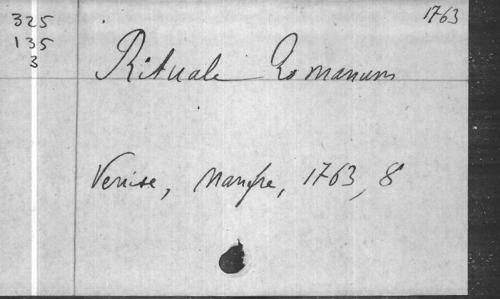 1763
325
135
3
Rituale Romanum
Venise, 1763, 8°